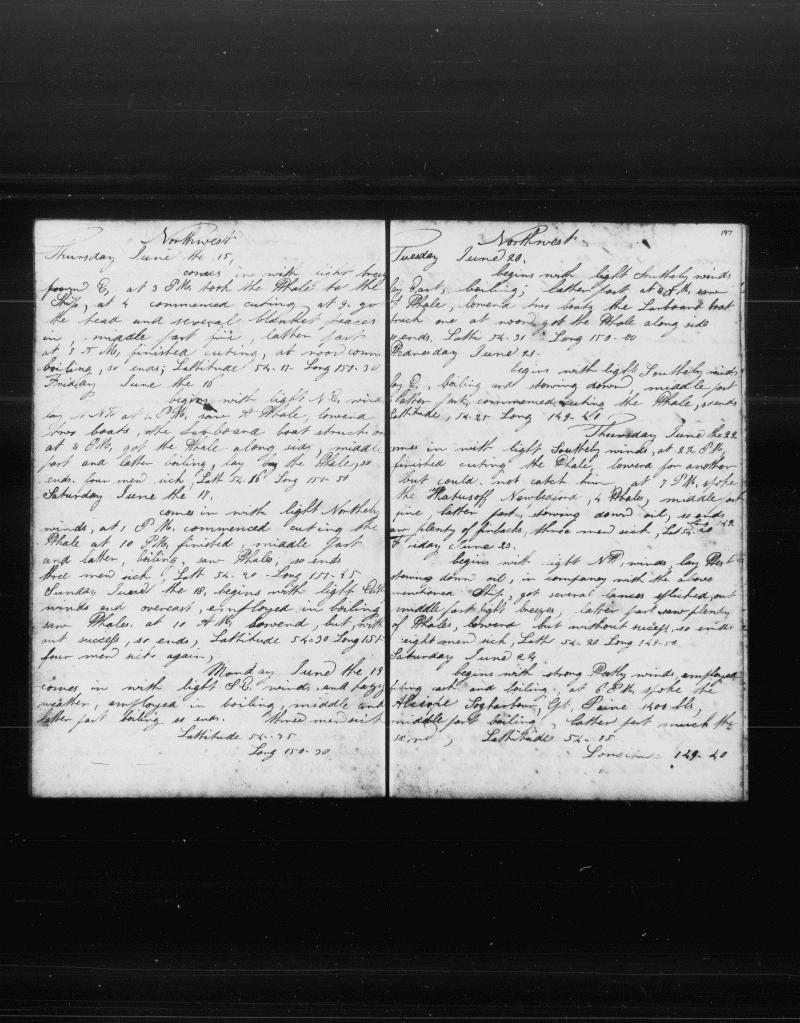 Northwest
Thursday June the 15,
comes in with light breez
from E, at 3 P M, took the Whale to the
Ship, at 4 commenced cuting, at 9. got
the head and several blanket peaces
in, middle part fire, latter part
at 8 A M, finished cuting, at noon com
boiling, so ends; Lattitude 54-11- Long 151-30
Friday June the 16
begins with light N.E. wind
lay N.N.E. at P M, saw A Whale, lowerd
two boats, the Larboard boat struck on
at 8 P M, got the Whale along side, middle
part and latter boiling, lay by the Whale, so
ends. four men sick, Latt 54-26 Long 151-50
Saturday June the 17.
comes in with light Northely
winds, at 1 P M. commenced cuting the
Whale at 10 P M, finished, middle part
and latter, boiling. saw Whales, so ends
three men sick, Latt 54-20- Long 151-45
Sunday June the 18, begins with light East
winds and overcast, employed in boiling
saw Whales. at 10 A M, lowerd, but, with
out success, so ends, Lattitude 54-30 Long 151-
four men sick again,
Monday June the 19
comes in with light S.E. winds. and hazy
weather, employed in boiling, middle and
latter part boiling so ends. three men sick
Lattitude 54-35
Long 150-30
197
Northwest
Tuesday June 20,
begins with light Southely winds
lay East, boiling; latter part at 8 A M. saw
A Whale, lowerd two boats, the Larboard boat
struck one at noon, got the Whale along side
so ends. Latt 54-31 Long 150-00
Wednesday June 21.
begins with light Southely winds
lay E., boiling and stowing down, middle part
latter part, commenced cuting the Whale, so ends
Lattitude, 54-25 Long 149-40
Thursday June the 22
comes in with light Southely winds, at 2 P M,
finished cuting the Whale, lowerd for another
but could not catch him, at 7 P M. spoke
the Natusoff Newbedford, 4 Whales, middle part
fire, latter part, stowing down oil, so ends
saw plenty of finbacks, three men sick, Lat 54-20 Long 149.
Friday June 23.
begins with light N W, winds, lay West
stowing down oil, in company with the above
mentioned Ship, got several lances spliched, out
middle part light breezes, latter part saw plenty
of Whales, lowerd but without sucess, so ends
eight men sick, Latt 54-20 Long 149-50
Saturday June 24
begins with strong Westly winds, employed
and boiling, at 6 P M, spoke the
Alcione Sagharbour, Cpt. Paine 1400 bls,
middle part boiling, latter part much the
same, Lattitude 54-15
Longitude 149-40